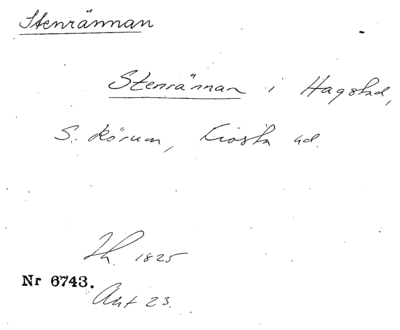 Stenrännan
Stenrännan i Hagstad,
S. Rörum, Frosta hd.
Lh. 1825
Nr 6743.
Akt 23.